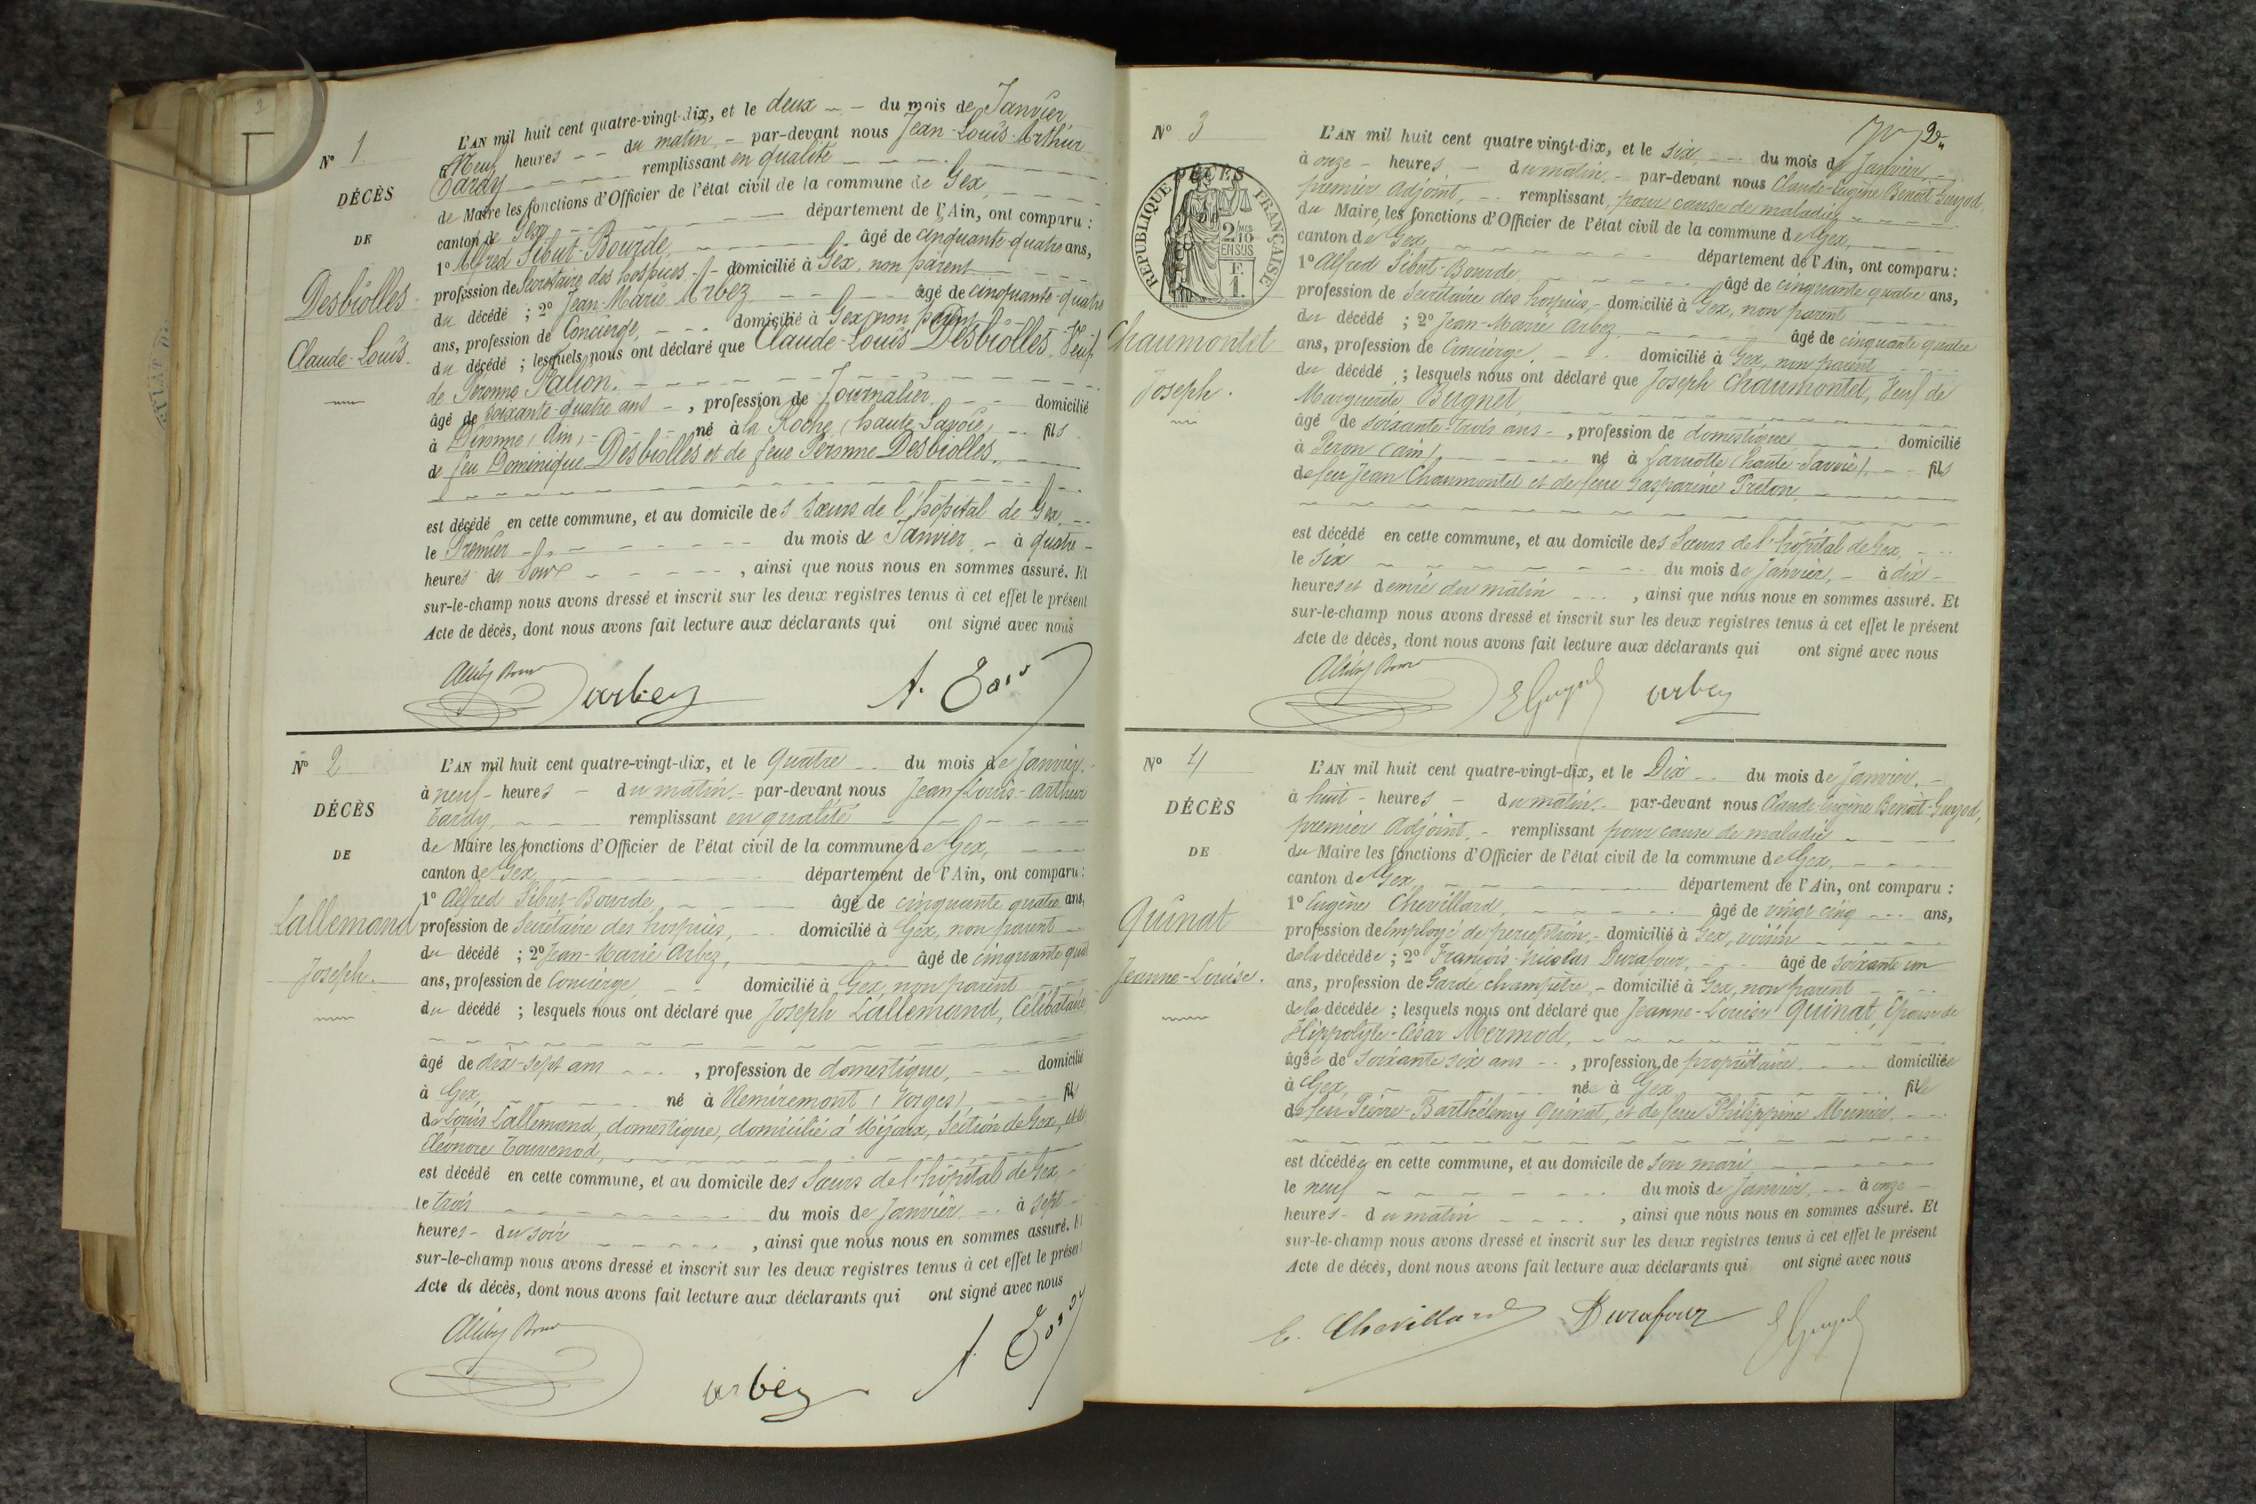 2
N° 1
DÉCÈS
DE
Desbiolles
Claude-Louis.
L'AN mil huit cent quatre-vingt-dix, et le deux du mois de Janvier
à Neuf heures du matin par-devant nous Jean-Louis-Arthur
Tardy remplissant en qualité
de Maire les fonctions d'Officier de l'état civil de la commune de Gex,
canton de Gex, département de l'Ain, ont comparu :
1° Alfred Sibut-Bourde, âgé de cinquante-quatre ans,
profession de Secrétaire des hospices domicilié à Gex, non parent
du décédé ; 2° Jean-Marie Arbez âgé de cinquante-quatre
ans, profession de Concierge, domicilié à Gex, non parent
du décédé ; lesquels nous ont déclaré que Claude-Louis Desbiolles, Veuf
de Peronne
âgé de soixante-quatre ans, profession de Journalier domicilié
à Divonne (Ain) né à la Roche (haute Savoie) fils
de feu Dominique Desbiolles et de feue Peronne Desbiolles.
est décédé en cette commune, et au domicile des Sœurs de l'hôpital de Gex
le Premier du mois de Janvier à quatre
heures du Soir, ainsi que nous nous en sommes assuré. Et
sur-le-champ nous avons dressé et inscrit sur les deux registres tenus à cet effet le présent
Acte de décès, dont nous avons fait lecture aux déclarants qui ont signé avec nous
arbez
N° 2
DÉCÈS
DE
Lallemand
Joseph.
L'AN mil huit cent quatre-vingt-dix, et le Quatre du mois de Janvier.
à neuf heures du matin. par-devant nous Jean-Louis-Arthur
Tardy, remplissant en qualité
de Maire les fonctions d'Officier de l'état civil de la commune de Gex,
canton de Gex, département de l'Ain, ont comparu :
1° Alfred Sibut-Bourde, âgé de cinquante quatre ans,
profession de Secrétaire des hospices, domicilié à Gex, non parent
du décédé ; 2° Jean-Marie Arbez, âgé de cinquante quat
ans, profession de Concierge domicilié à Gex, non parent
du décédé ; lesquels nous ont déclaré que Joseph Lallemand, Célibataire
âgé de dix-sept ans, profession de domestique, domicilié
à Gex, né à Remiremont (Vosges) fils
de Louis Lallemand, domestique, domicilié à Mijoux, Section de Gex, et de
Eléonore Touvenod,
est décédé en cette commune, et au domicile des Sœurs de l'hôpital de Gex,
le trois du mois de Janvier à sept
heures du soir, ainsi que nous nous en sommes assuré. Et
sur-le-champ nous avons dressé et inscrit sur les deux registres tenus à cet effet le présent
Acte de décès, dont nous avons fait lecture aux déclarants qui ont signé avec nous
arbez
2
N° 3
RÉPUBLIQUE FRANÇAISE
2/10 EN SUS
F. 1.
Chaumontet
Joseph.
L'AN mil huit cent quatre vingt-dix, et le six du mois de Janvier
à onze heures du matin. par-devant nous Claude-Eugène Benoit-Guyod,
premier Adjoint, remplissant pour cause de maladie
du Maire les fonctions d'Officier de l'état civil de la commune de Gex,
canton de Gex, département de l'Ain, ont comparu :
1° Alfred Sibut-Bourde, âgé de cinquante quatre ans,
profession de Secrétaire des hospices, domicilié à Gex, non parent
du décédé ; 2° Jean-Marie Arbez âgé de cinquante quatre
ans, profession de Concierge, domicilié à Gex, non parent
du décédé ; lesquels nous ont déclaré que Joseph Chaumontet, Veuf de
Marguerite Bugnet,
âgé de soixante-trois ans, profession de domestique domicilié
à Peron (ain) né à (haute-Savoie) fils
de feu Jean Chaumontet et de feue Gasparine
est décédé en cette commune, et au domicile des Sœurs de l'hôpital de Gex,
le six du mois de Janvier, à dix
heures et demie du matin, ainsi que nous nous en sommes assuré. Et
sur-le-champ nous avons dressé et inscrit sur les deux registres tenus à cet effet le présent
Acte de décès, dont nous avons fait lecture aux déclarants qui ont signé avec nous
EGuyod arbez
N° 4
DÉCÈS
DE
Quinat
Jeanne-Louise.
L'AN mil huit cent quatre-vingt-dix, et le Dix du mois de Janvier,
à huit heures du matin. par-devant nous Claude-Eugène Benoit-Guyod,
premier Adjoint, remplissant pour cause de maladie
du Maire les fonctions d'Officier de l'état civil de la commune de Gex,
canton de Gex, département de l'Ain, ont comparu :
1° Eugène Chevillard, âgé de vingt cinq ans,
profession de Employé de perception, domicilié à Gex, voisin
de la décédée ; 2° François-Nicolas Durafour, âgé de soixante un
ans, profession de Garde champêtre, domicilié à Gex, non parent
de la décédée ; lesquels nous ont déclaré que Jeanne-Louise Quinat, Epouse de
Hippolyte-César Mermod,
âgée de soixante six ans, profession de propriétaire domiciliée
à Gex, née à Gex fille
de feu Pierre-Barthélemy Quinat, et de feue Philippine Munier
est décédée en cette commune, et au domicile de son mari
le neuf du mois de Janvier, à onze
heures du matin, ainsi que nous nous en sommes assuré. Et
sur-le-champ nous avons dressé et inscrit sur les deux registres tenus à cet effet le présent
Acte de décès, dont nous avons fait lecture aux déclarants qui ont signé avec nous
E. Chevillard Durafour EGuyod